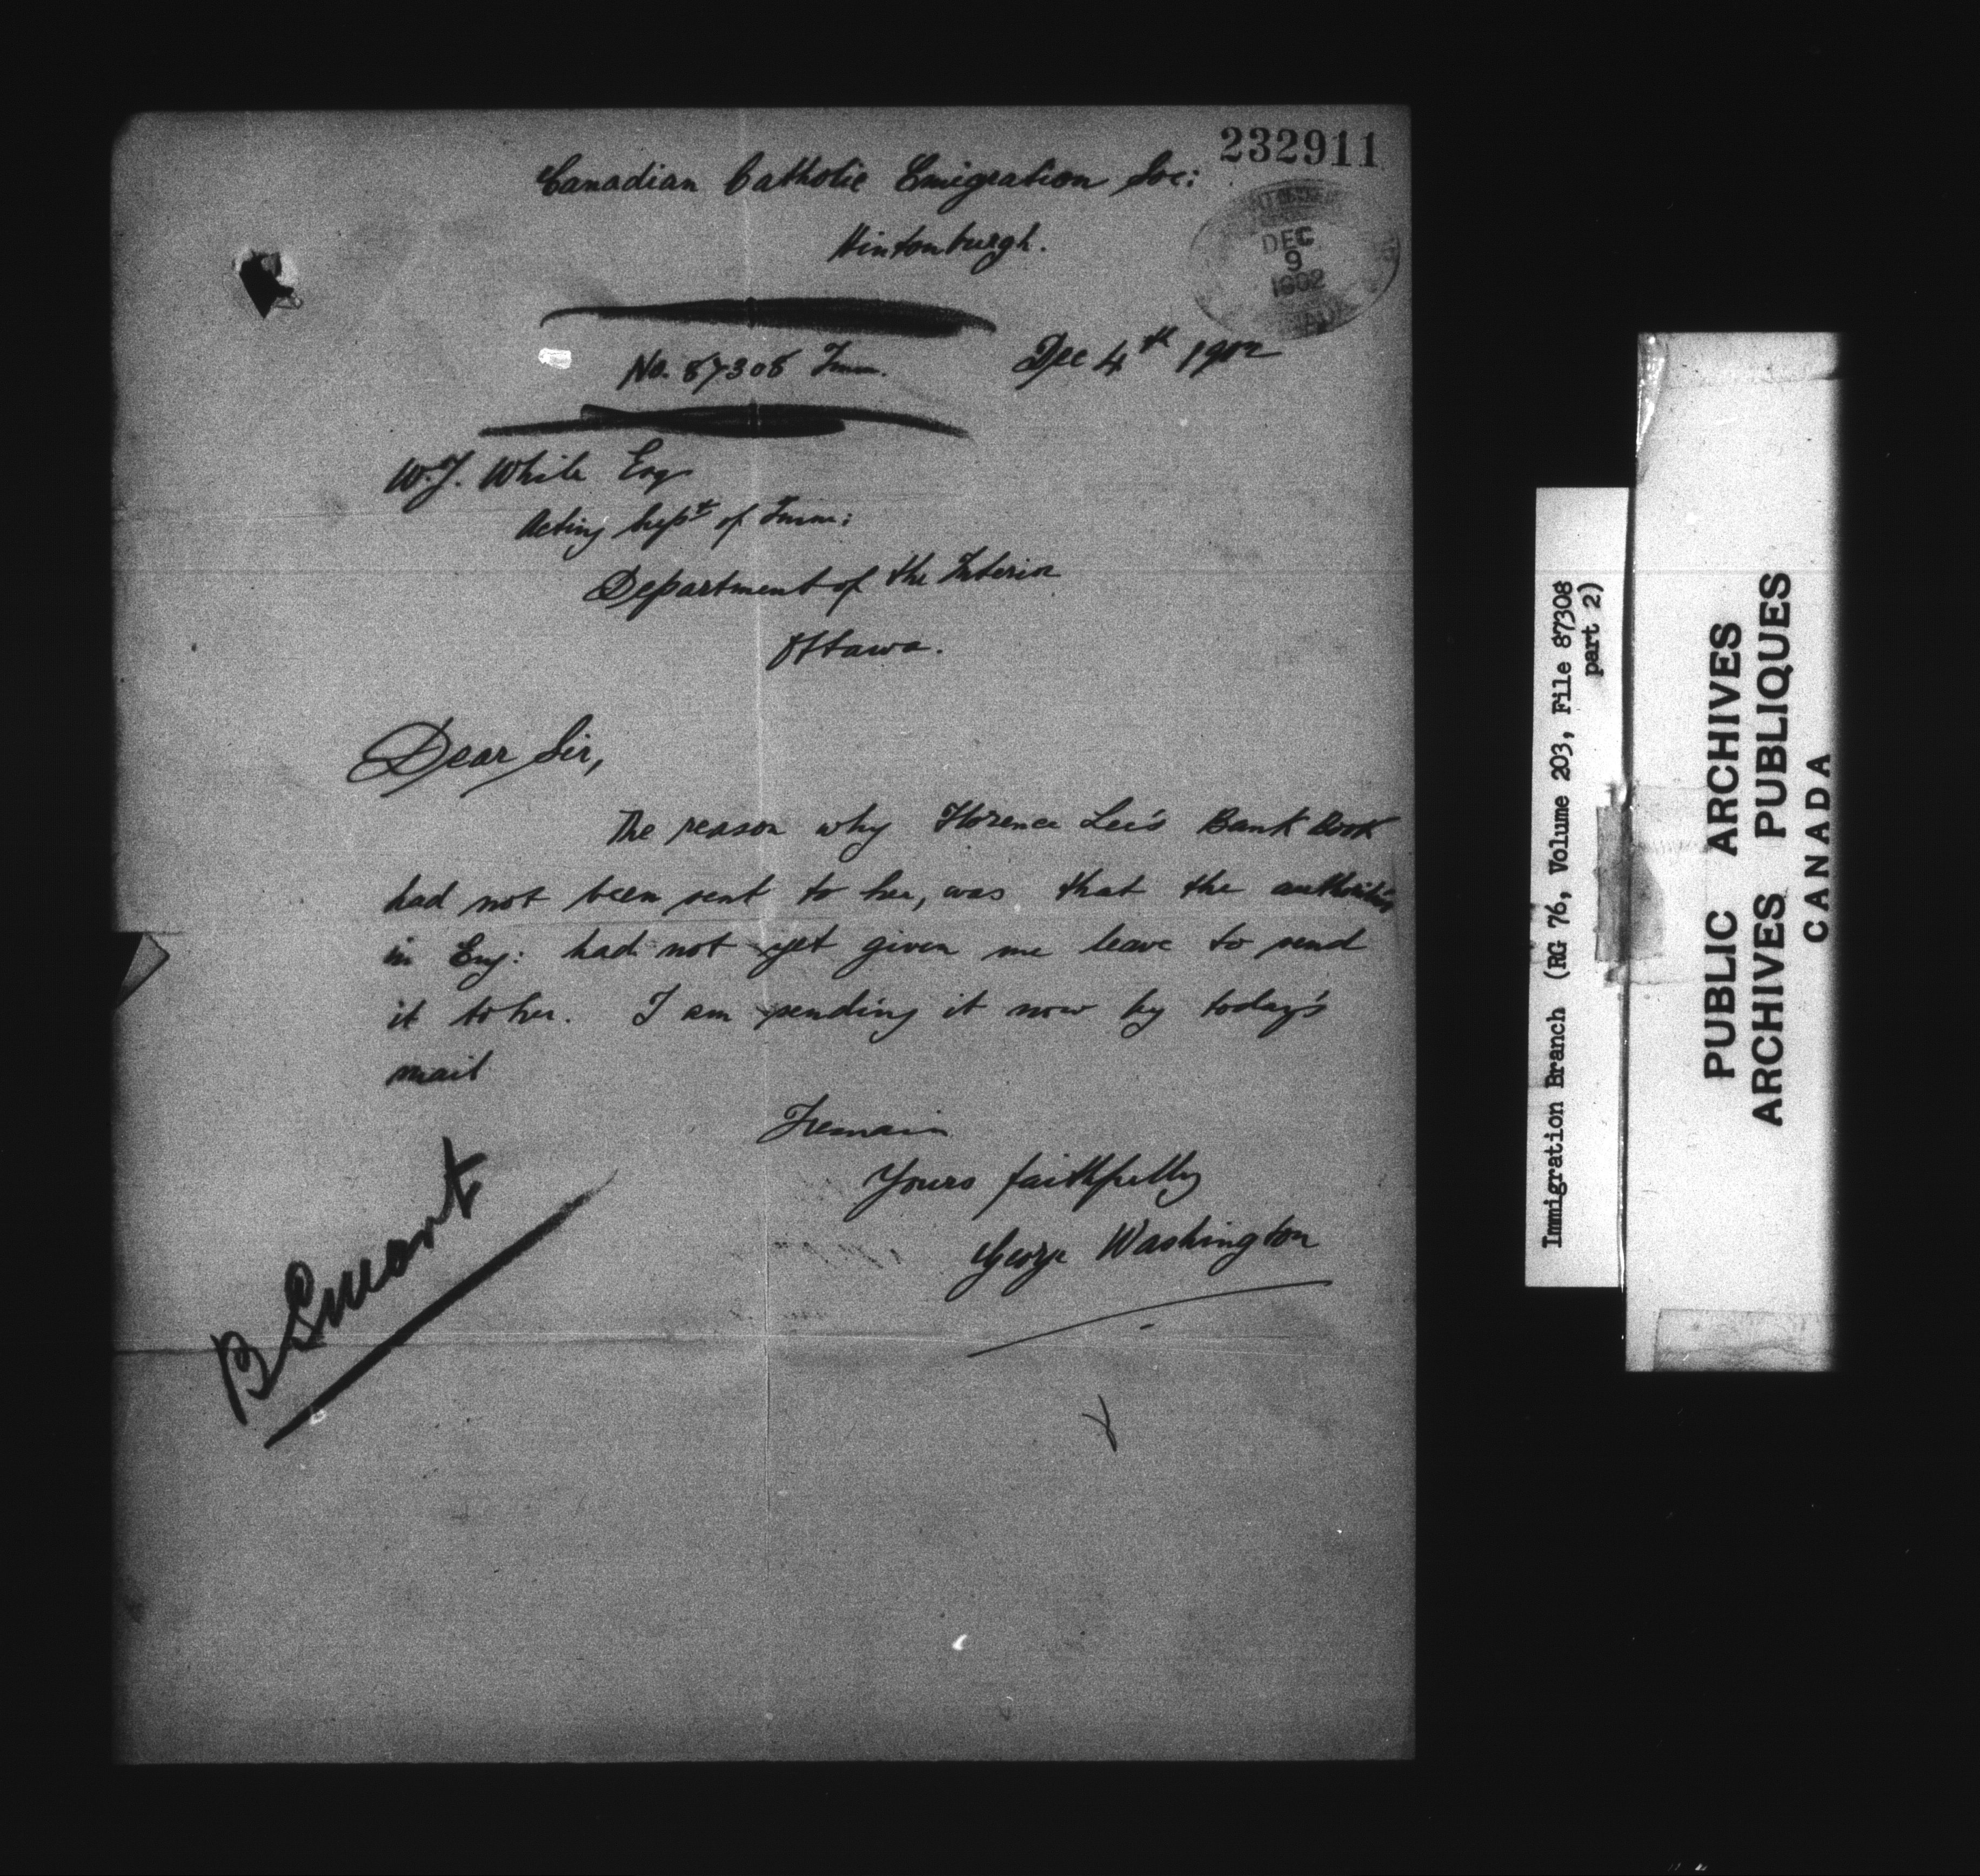 232911
Canadian Catholic Emigration Soc:
Hintonburgh.
DEC
9
1902
No. 87308 Imm.
Dec 4th 1902
W.J. White Esq
Acting Supt of Imm:
Department of the Interior
Ottawa.
Dear Sir,
The reason why Florence Lee's Bank Book
had not been sent to her, was that the authorities
in Eng: had not yet given me leave to send
it to her. I am sending it now by today's
mail
I remain
Yours faithfully
George Washington
B Smart
Immigration Branch (RG 76, Volume 203, File 87308
part 2)
PUBLIC ARCHIVES
ARCHIVES PUBLIQUES
CANADA